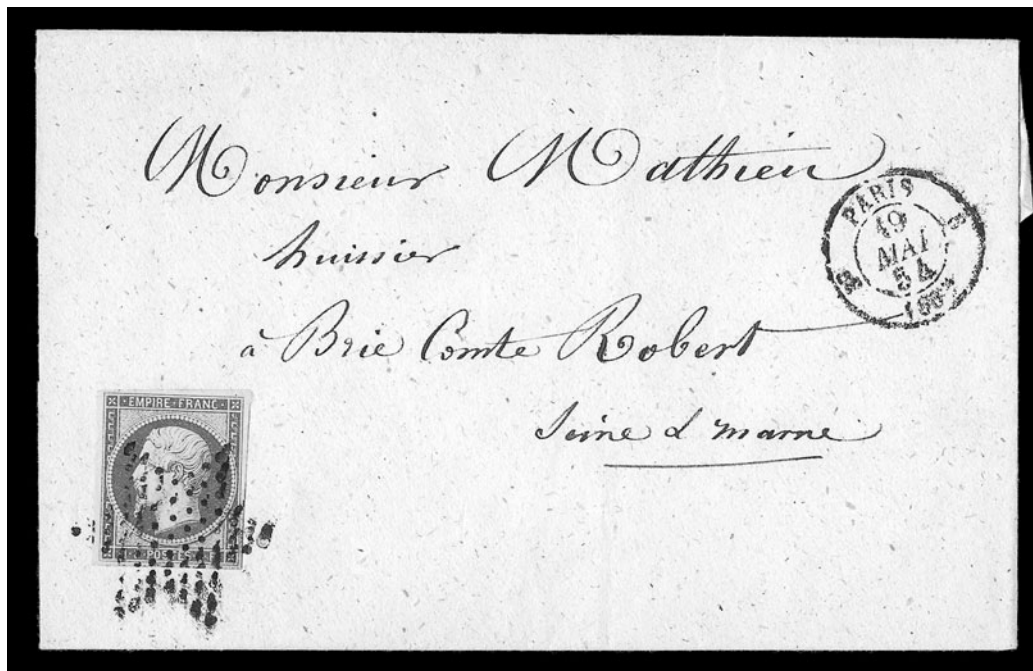 Monsieur Mathieu
huissier
à Brie Comte Robert
Seine & marne
PARIS B
19
MAI
54
EMPIRE • FRANC •
POSTES